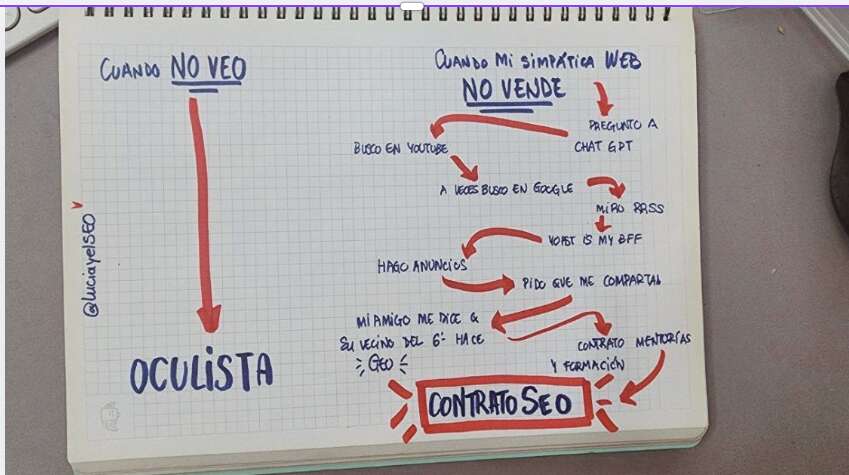 CUANDO NO VEO
OCULISTA
@luciayelSEO
CUANDO Mi SIMPÁTICA WEB
NO VENDE
PREGUNTO A
CHAT GPT
BUSCO EN YOUTUBE
A VECES BUSCO EN GOOGLE
MIRO RRSS
YOAST IS MY BFF
HAGO ANUNCIOS
PIDO QUE ME COMPARTAN
MI AMIGO ME DICE Q
SU VECINO DEL 6º HACE
GEO
CONTRATO MENTORÍAS
Y FORMACIÓN
CONTRATO SEO